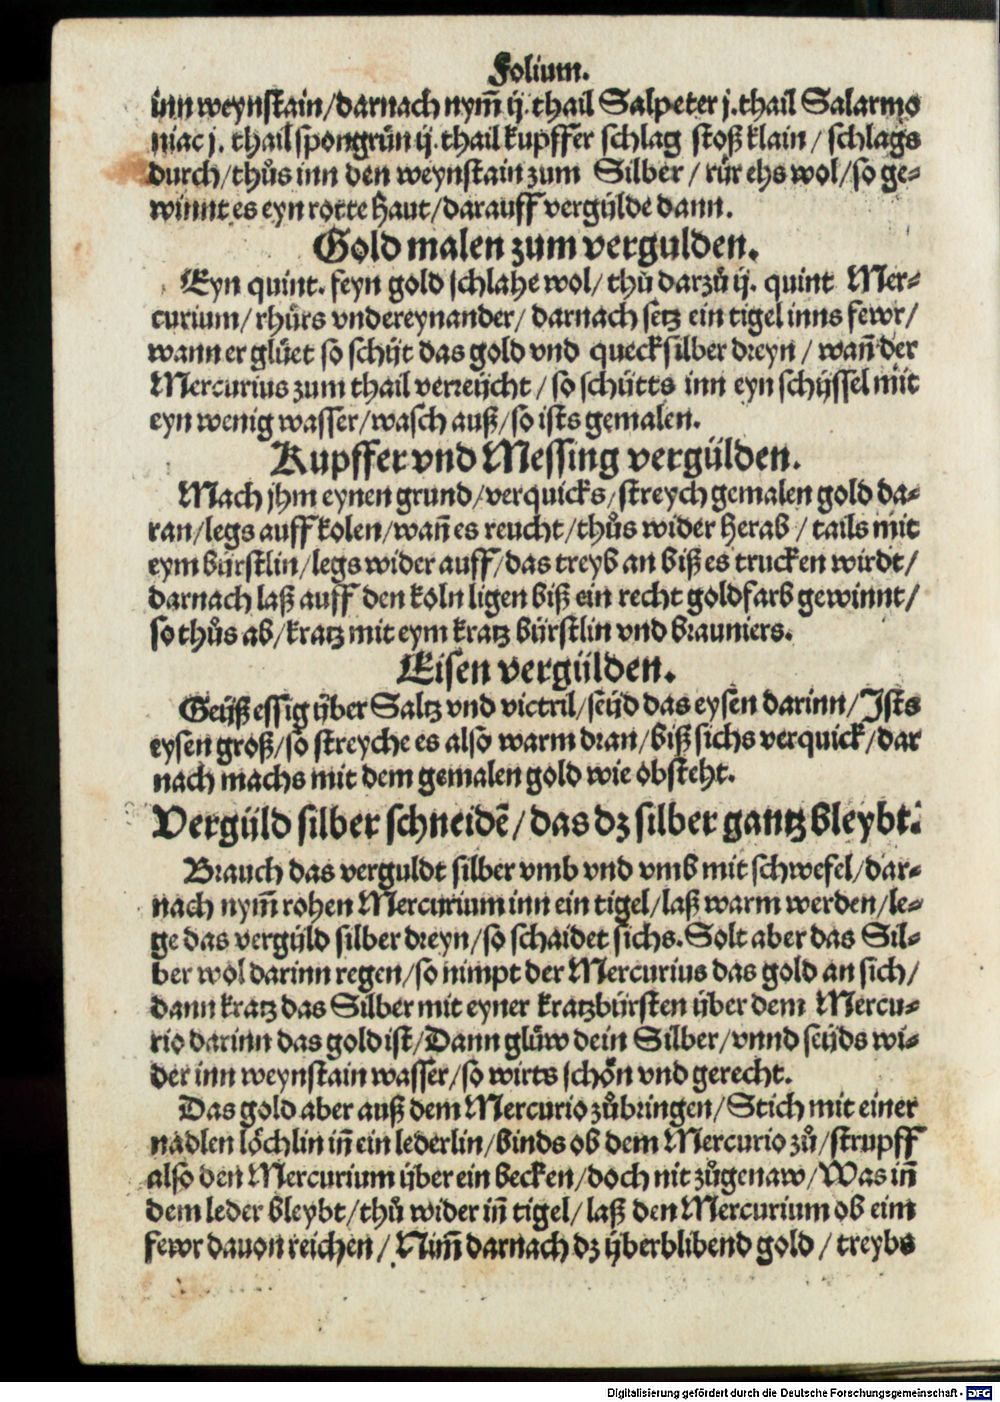 Folium.
inn weynstain/darnach nym̃ ij. thail Salpeter j. thail Salarmo
niac j. thail spongrün ij. thail kupffer schlag stoß klain / schlags
durch/thůs inn den weynstain zum Silber / rür ehs wol/so ge-
winnt es eyn rotte haut/darauff vergülde dann.
Gold malen zum vergulden.
Eyn quint. feyn gold schlahe wol/ thů darzů ij. quint Mer-
curium/rhürs vndereynander/ darnach setz ein tigel inns fewr/
wann er glüet so schüt das gold vnd quecksilber dreyn / wañ der
Mercurius zum thail verreücht / so schütts inn eyn schüssel mit
eyn wenig wasser/wasch auß/so ists gemalen.
Kupffer vnd Messing vergülden.
Mach jhm eynen grund/verquicks/streych gemalen gold da-
ran/legs auff kolen/wañ es reucht/thůs wider herab / tails mit
eym bürstlin/legs wider auff/das treyb an biß es trucken wirdt/
darnach laß auff den koln ligen biß ein recht goldfarb gewinnt/
so thůs ab/kratz mit eym kratz bürstlin vnd brauniers.
Eisen vergülden.
Geüß essig über Saltz vnd victril/seüd das eysen darinn/Ists
eysen groß/so streyche es also warm dran/biß sichs verquick/dar
nach machs mit dem gemalen gold wie obsteht.
Vergüld silber schneidē/das dz silber gantz bleybt.
Brauch das verguldt silber vmb vnd vmb mit schwefel/dar-
nach nym̃ rohen Mercurium inn ein tigel/laß warm werden/le-
ge das vergüld silber dreyn/so schaidet sichs. Solt aber das Sil-
ber wol darinn regen/so nimpt der Mercurius das gold an sich/
dann kratz das Silber mit eyner kratzbürsten über dem Mercu-
rio darinn das gold ist/Dann glüw dein Silber/vnnd seüds wi-
der inn weynstain wasser/so wirts schön vnd gerecht.
Das gold aber auß dem Mercurio zůbringen/Stich mit einer
nadlen löchlin iñ ein lederlin/binds ob dem Mercurio zů/strupff
also den Mercurium über ein becken/doch nit zůgenaw/Was iñ
dem leder bleybt/thů wider iñ tigel/ laß den Mercurium ob eim
fewr dauon reichen / Nim̃ darnach dz überblibend gold / treybs
Digitalisierung gefördert durch die Deutsche Forschungsgemeinschaft - DFG